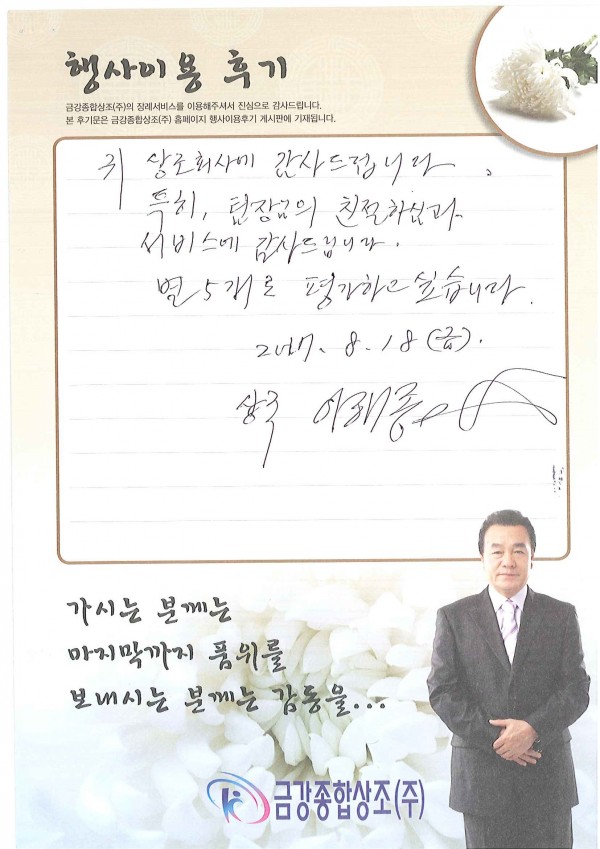 행사이용 후기
금강종합상조(주)의 장례서비스를 이용해주셔서 진심으로 감사드립니다.
본 후기문은 금강종합상조(주) 홈페이지 행사이용후기 게시판에 기재됩니다.
귀 상조회사에 감사드립니다.
특히, 팀장님의 친절하심과
서비스에 감사드립니다.
별 5개로 평가하고 싶습니다.
2017. 8. 18 (금).
상주 이재종
가시는 분께는
마지막까지 품위를
보내시는 분께는 감동을...
금강종합상조(주)